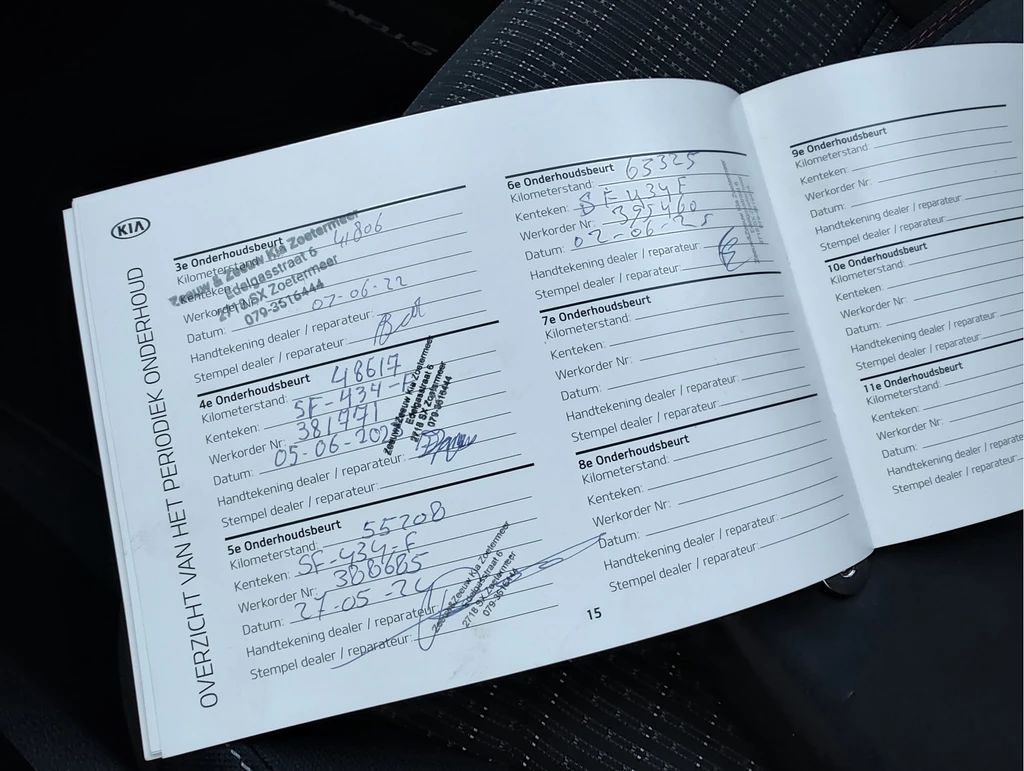 KIA
OVERZICHT VAN HET PERIODIEK ONDERHOUD
3e Onderhoudsbeurt
Kilometerstand: 41806
Kenteken:
Werkorder Nr:
Datum: 07-06-22
Handtekening dealer / reparateur:
Stempel dealer / reparateur:
Zeeuw & Zeeuw Kia Zoetermeer
Edelgasstraat 6
2718 SX Zoetermeer
079-3516444
4e Onderhoudsbeurt
Kilometerstand: 48617
Kenteken: SF-434-F
Werkorder Nr: 381771
Datum: 05-06-202
Handtekening dealer / reparateur:
Stempel dealer / reparateur:
Zeeuw&Zeeuw Kia Zoetermeer
Edelgasstraat 6
2718 SX Zoetermeer
079-3516444
5e Onderhoudsbeurt
Kilometerstand: 55208
Kenteken: SF-434-F
Werkorder Nr: 388685
Datum: 27-05-24
Handtekening dealer / reparateur:
Stempel dealer / reparateur:
Zeeuw&Zeeuw Kia Zoetermeer
Edelgasstraat 6
2718 SX Zoetermeer
079-3516444
6e Onderhoudsbeurt
Kilometerstand: 63325
Kenteken: SF434F
Werkorder Nr: 395460
Datum: 02-06-25
Handtekening dealer / reparateur:
Stempel dealer / reparateur:
7e Onderhoudsbeurt
Kilometerstand:
Kenteken:
Werkorder Nr:
Datum:
Handtekening dealer / reparateur:
Stempel dealer / reparateur:
8e Onderhoudsbeurt
Kilometerstand:
Kenteken:
Werkorder Nr:
Datum:
Handtekening dealer / reparateur:
Stempel dealer / reparateur:
15
9e Onderhoudsbeurt
Kilometerstand:
Kenteken:
Werkorder Nr:
Datum:
Handtekening dealer / reparateur:
Stempel dealer / reparateur:
10e Onderhoudsbeurt
Kilometerstand:
Kenteken:
Werkorder Nr:
Datum:
Handtekening dealer / reparateur:
Stempel dealer / reparateur:
11e Onderhoudsbeurt
Kilometerstand:
Kenteken:
Werkorder Nr:
Datum:
Handtekening dealer / reparate
Stempel dealer / reparateur: